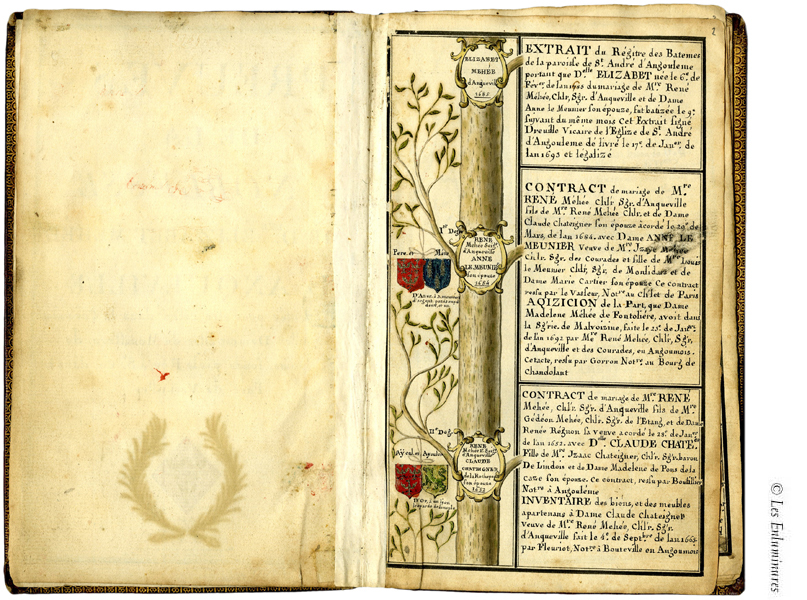 2
ELIZABET
MEHÉE
d'Anqueville
1685
EXTRAIT du Régitre des Batemes
de la paroisse de St. André d'Angouleme
portant que Dlle ELIZABET née le 6e. de
Févr. de lan 1685 du mariage de Mre René
Méhée, Chlr, Sgr. d'Anqueville et de Dame
Anne le Meunier son épouse, fut batizée le 9e.
suivant du même mois Cet Extrait signé
Dreuille Vicaire de l'Eglize de St. André
d'Angouleme dé livré le 17e. de Janer. de
lan 1693 et légalizé
Ir. Deg.
Pere. et Mere
RENÉ
Mehée Seigr
d'Anqueville
ANNE
LE MEUNIER
son épouse
1684
CONTRACT de mariage de Mre
RENÉ Méhée Chlr Sgr. d'Anqueville
fils de Mre René Mehée Chlr. et de Dame
Claude Chateigner son épouse acordé le 20e. de
Mars, de lan 1684. avec Dame ANNE LE
MEUNIER veuve de Mre Izaac Mehée
Chlr. Sgr. des Courades et fille de Mre Louis
le Meunier Chlr, Sgr, de Monlidars et de
Dame Marie Cartier son épouse Ce contract
ressu par le Vasseur, Notre au Chlet de Paris
AQIZICION de la Part, que Dame
Madelene Méhée de Fontoliére, avoit dans
la Sgrie. de Malvoizine, faite le 23e. de Janer.
de lan 1692 par Mre René Mehée, Chlr, Sgr,
d'Anqueville et des Courades, en Angoumois.
Cetacte, ressu par Gorron Notre. au Bourg de
Chandolant
IIe. Deg.
Ayeul et Ayeule
RENÉ
Mehée Seigr
d'Anqueville
CLAUDE
CHATEIGNER
son épouse
CONTRACT de mariage de Mre RENÉ
Mehée, Chlr. Sgr. d'Anqueville fils de Mre
Gédéon Mehée, Chlr. Sgr. de l'Etang, et de Dame
Renée Régnon sa veuve acordé le 28e. de Janer.
de lan 1652. avec Dlle CLAUDE CHATE.
Fille de Mre Izaac Chateigner, Chlr. Sgr. baron
De Lindois et de Dame Madelene de Pons de la
caze son épouse. Ce contract, ressu par
Notre à Angouleme
INVENTAIRE des biens, et des meubles
apartenans à Dame Claude Chateigner
veuve de Mre René Mehée, Chlr. Sgr.
d'Anqueville fait le 4e. de Septbre de lan 1662
par Fleuriot, Notre à Bouteville en Angoumois
© Les Enluminures